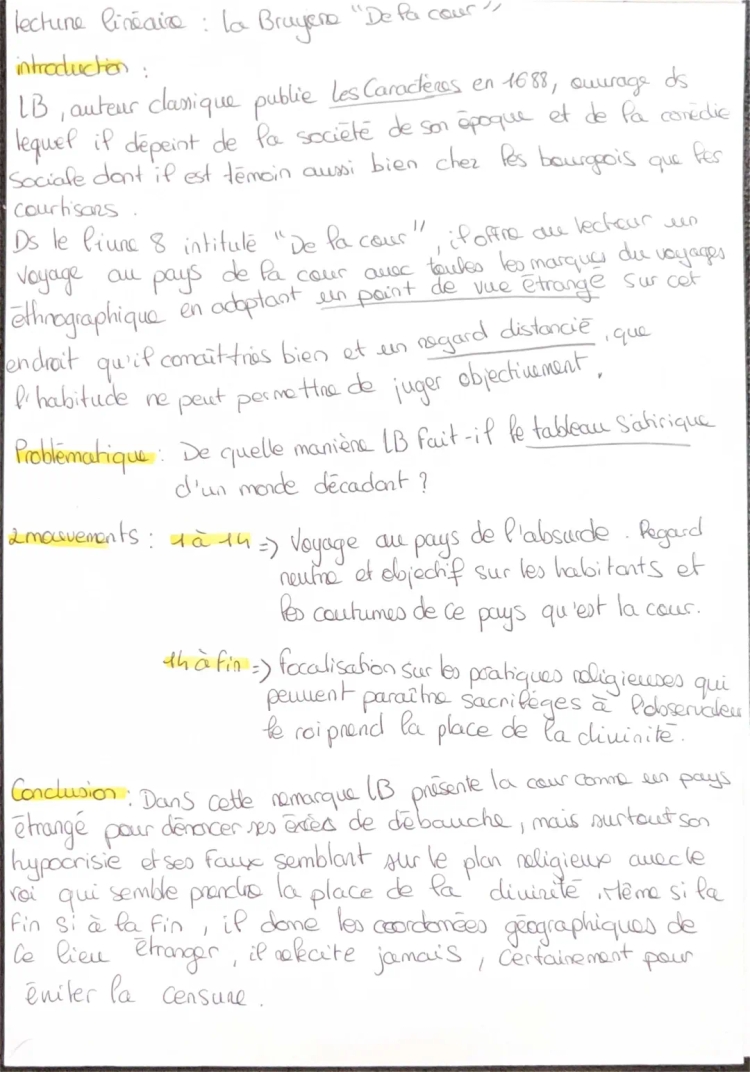 lecture linéaire : la Bruyere "De la cour"
introduction :
LB, auteur classique publie Les Caractères en 1688, ouvrage ds
lequel il dépeint de la société de son époque et de la comédie
sociale dont il est témoin aussi bien chez les bourgeois que les
courtisans.
Ds le livre 8 intitulé "De la cour", il offre au lecteur un
voyage au pays de la cour avec toutes les marques du voyages
éthnographique en adoptant un point de vue étrangé sur cet
endroit qu'il connaît très bien et un regard distancié, que
l'habitude ne peut permettre de juger objectivement.
Problématique : De quelle manière LB fait-il le tableau satirique
d'un monde décadant ?
2 mouvements : 1 à 14 => Voyage au pays de l'absurde. Regard
neutre et objectif sur les habitants et
les coutumes de ce pays qu'est la cour.
14 à fin => focalisation sur les pratiques religieuses qui
peuvent paraître sacrilèges à l'observateur
le roi prend la place de la divinité.
Conclusion : Dans cette remarque LB présente la cour comme un pays
étrangé pour dénoncer ses excès de débauche, mais surtout son
hypocrisie et ses faux semblant sur le plan religieux avec le
roi qui semble prendre la place de la divinité. Même si la
fin si à la fin, il done les coordonées géographiques de
ce lieu étranger, il ne le cite jamais, certainement pour
éviter la censure.